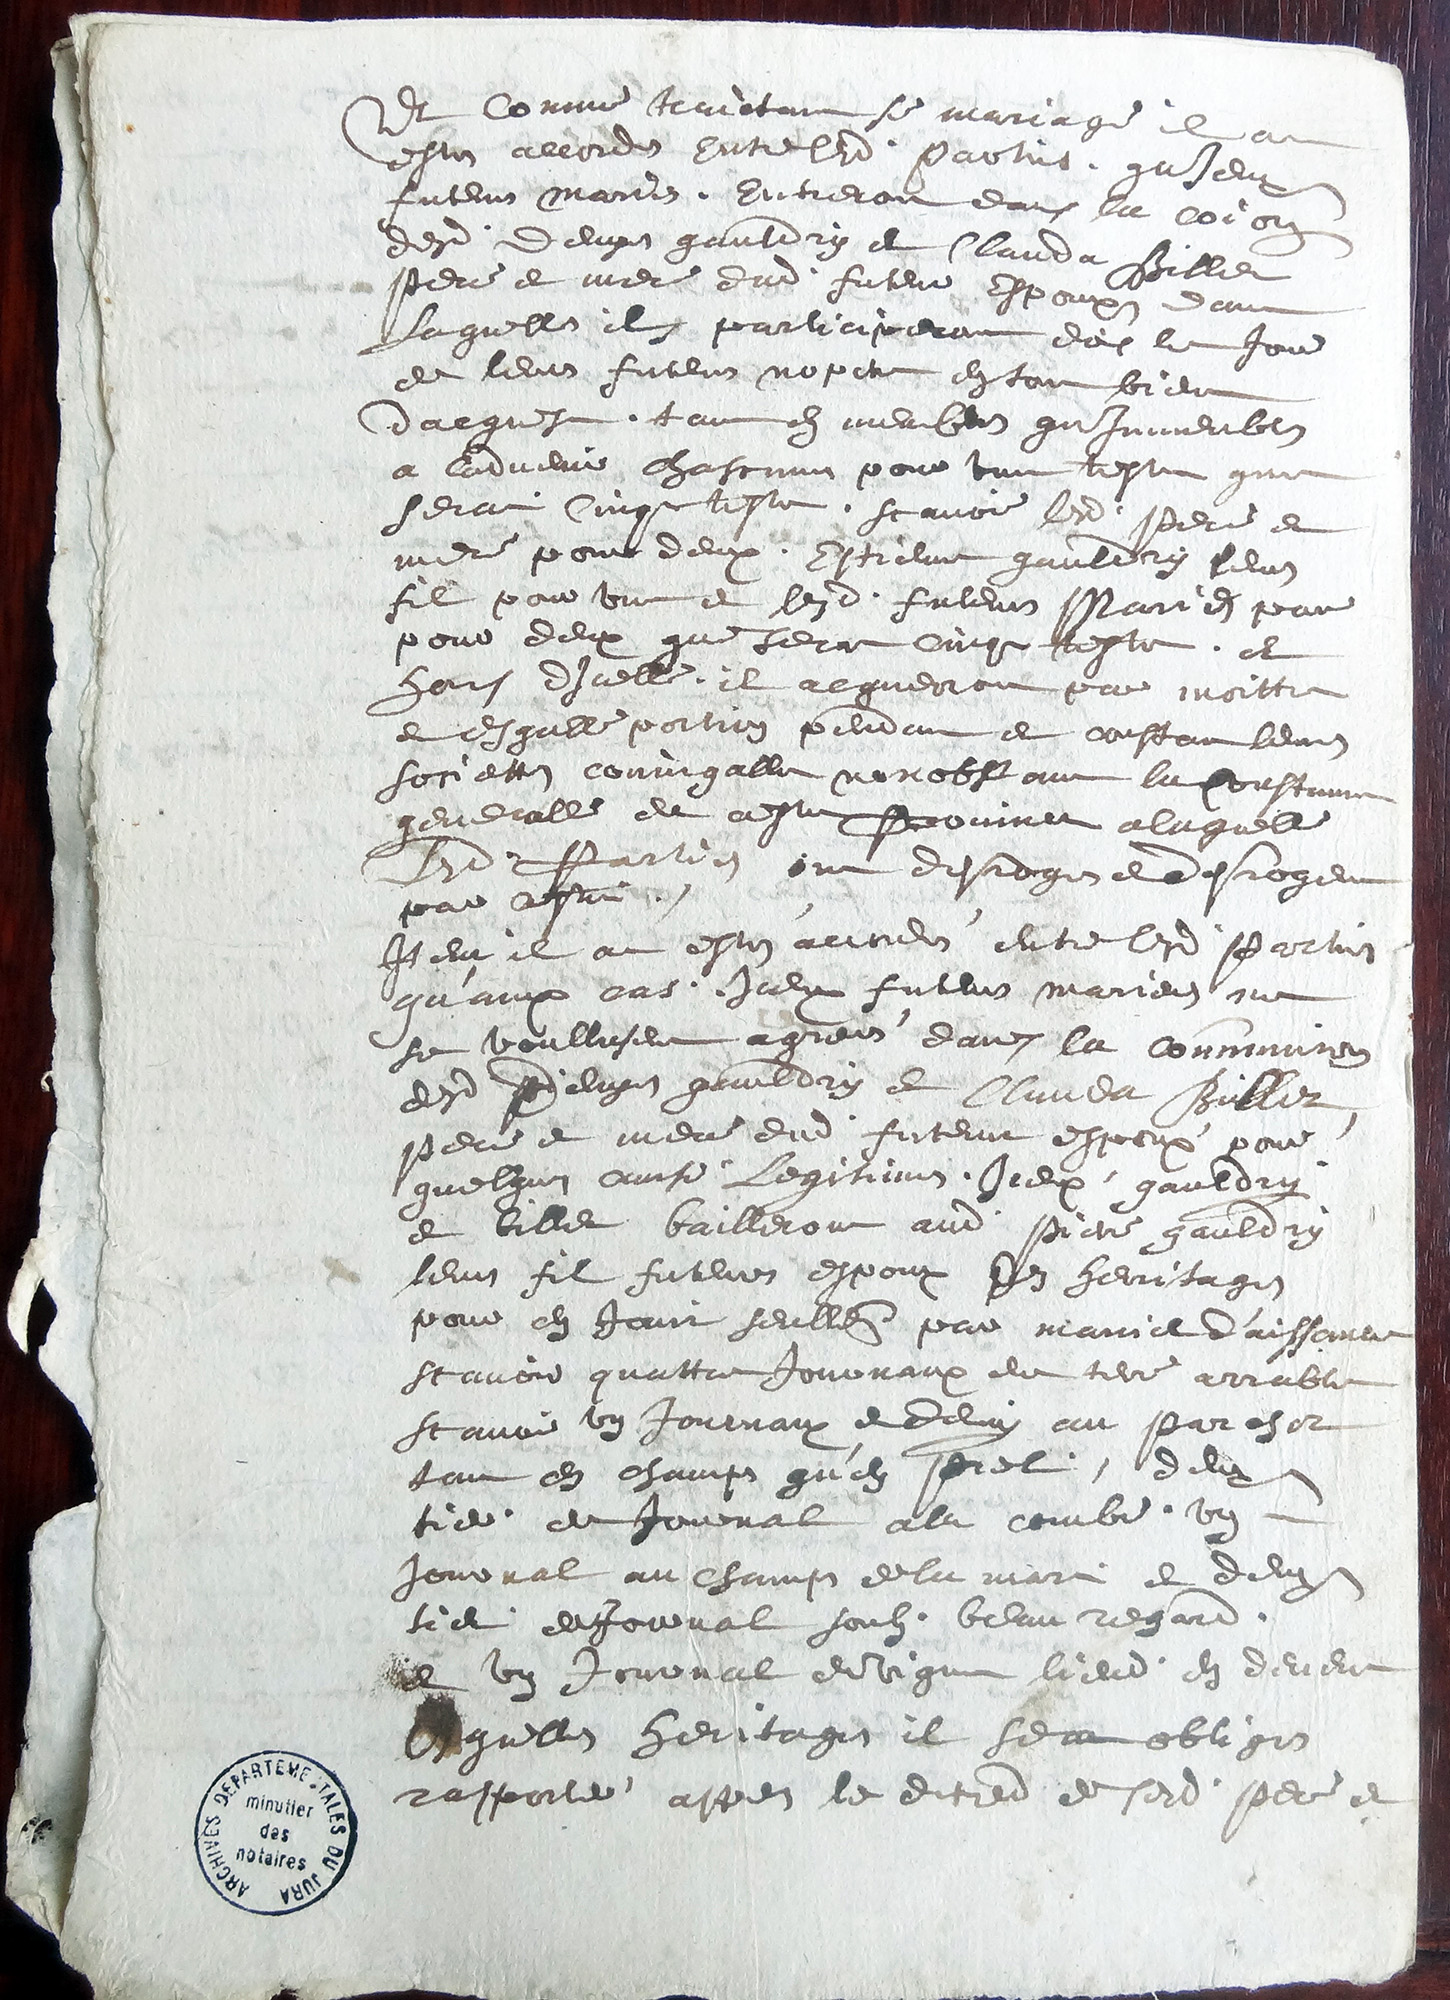 Et comme traictant ce mariage il at
estez accordez entre lesd. parties. qu'Iceux
futeurs mariés. Entreront dans la co͞ion
desd. Denys gauldry et Clauda Billet
pere et mere dud. futeur Espoux dans
laquelle ilz participeront déis le Jour
de leurs futeurs nopces en tous biens
d'acquest. tant en meubles qu'Immeubles
a l'advenir chascung pour une teste que
serat Cinq teste. scavoir lesd. pere et
mere pour deux. Estienne gauldry leurs
fil pour une et lesd. futeurs Mariés
pour deux que serat cinq teste. et
hors d'Icelle. il acqueront par moitte
et esgalle portion pendant et constant leurs
societtez coniugalle nonobstant la coustume
generalle de ceste Province a laquelle
Lesd. Parties ont desrogez et desrogent
par cestes./
Item il at estez accordez entre lesd. Parties
qu'aux cas. Iceux futeurs mariés ne
se voullissent agreer dans la communion
desd Denys gauldry et Clauda Billet
pere et mere dud futeur espoux pour
quelques cause Legitimes. Iceux gauldry
et billet bailleront aud. Piere gauldry
leurs fil futeurs espoux des heritages
pour en Jouir seullem͞ par maniere d'aissance
scavoir quattre Journaux de terre arrable
scavoir ung Journaux et demy au
tant en champs qu'en prel, deux
tier. de Journal a la combe. ung
Journal au champs de la mare et deux
tier de Journal soub. beau regard.
et ung Journal de vigne lieud. en
Lesquelles heritages il serat obliger
rapporter apres le deced de sesd. pere et
ARCHIVES DÉPARTEMENTALES DU JURA
minutier
des
notaires